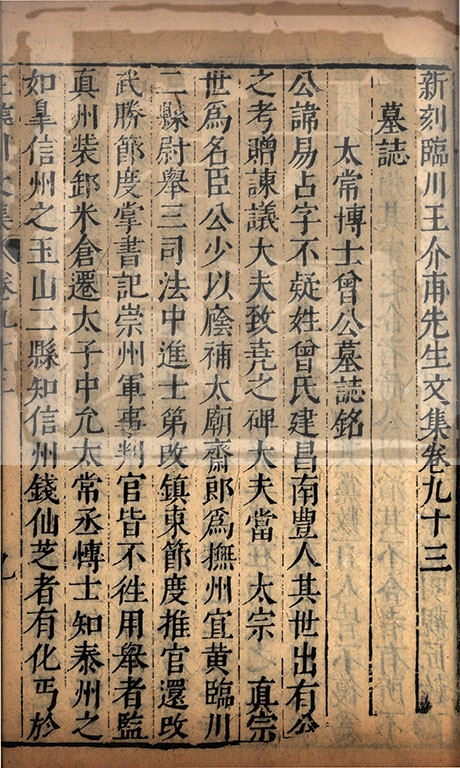 新刻臨川王介甫先生文集卷九十三
墓誌
太常博士曾公墓誌銘
公諱易占字不疑姓曾氏建昌南豊人其世出有公
之考贈諫議大夫致堯之碑大夫當 太宗 真宗
世爲名臣公少以廕補太廟齋郎爲撫州宜黄臨川
二縣尉舉三司法中進士第改鎮東節度推官還改
武勝節度掌書記崇州軍事判官皆不徃用舉者監
真州装卸米倉遷太子中允太常丞愽士知泰州之
如臯信州之玉山二縣知信州錢仙芝者有化丐於